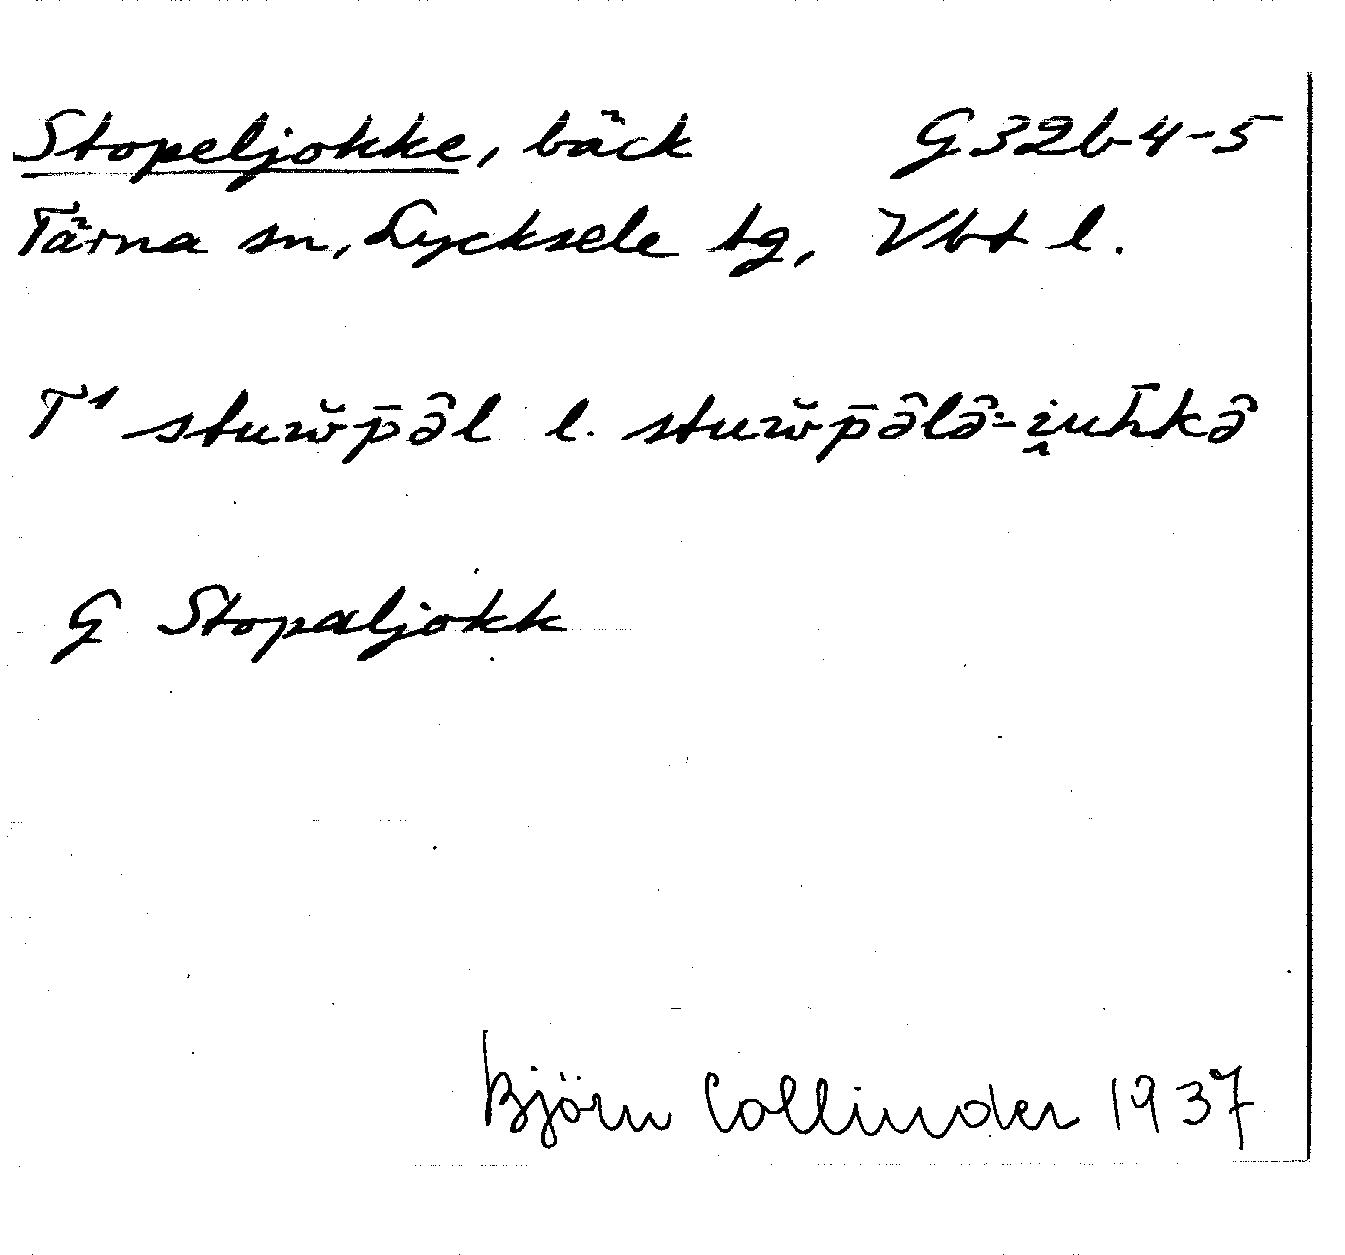 Stopeljokke, bäck G32b4-5
Tärna sn, Lycksele tg, Vbt l.
T¹ stuw̆p̄ə̂l l. stuw̆p̄ə̂lə̂-i̯uh̄kə̂
G Stopaljokk
Björn Collinder 1937